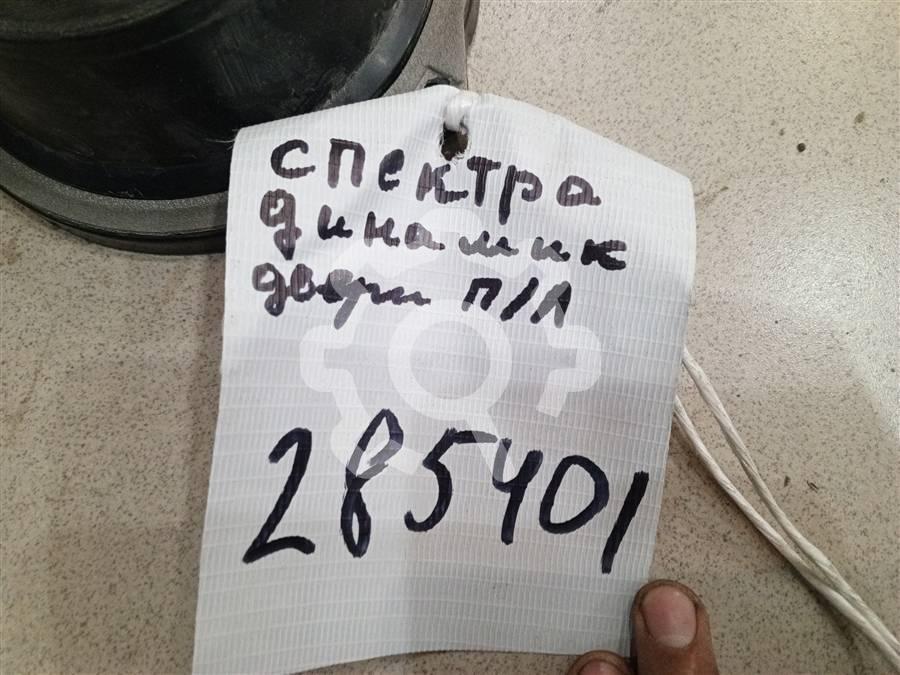 спектра
динамик
двери п/л
285401